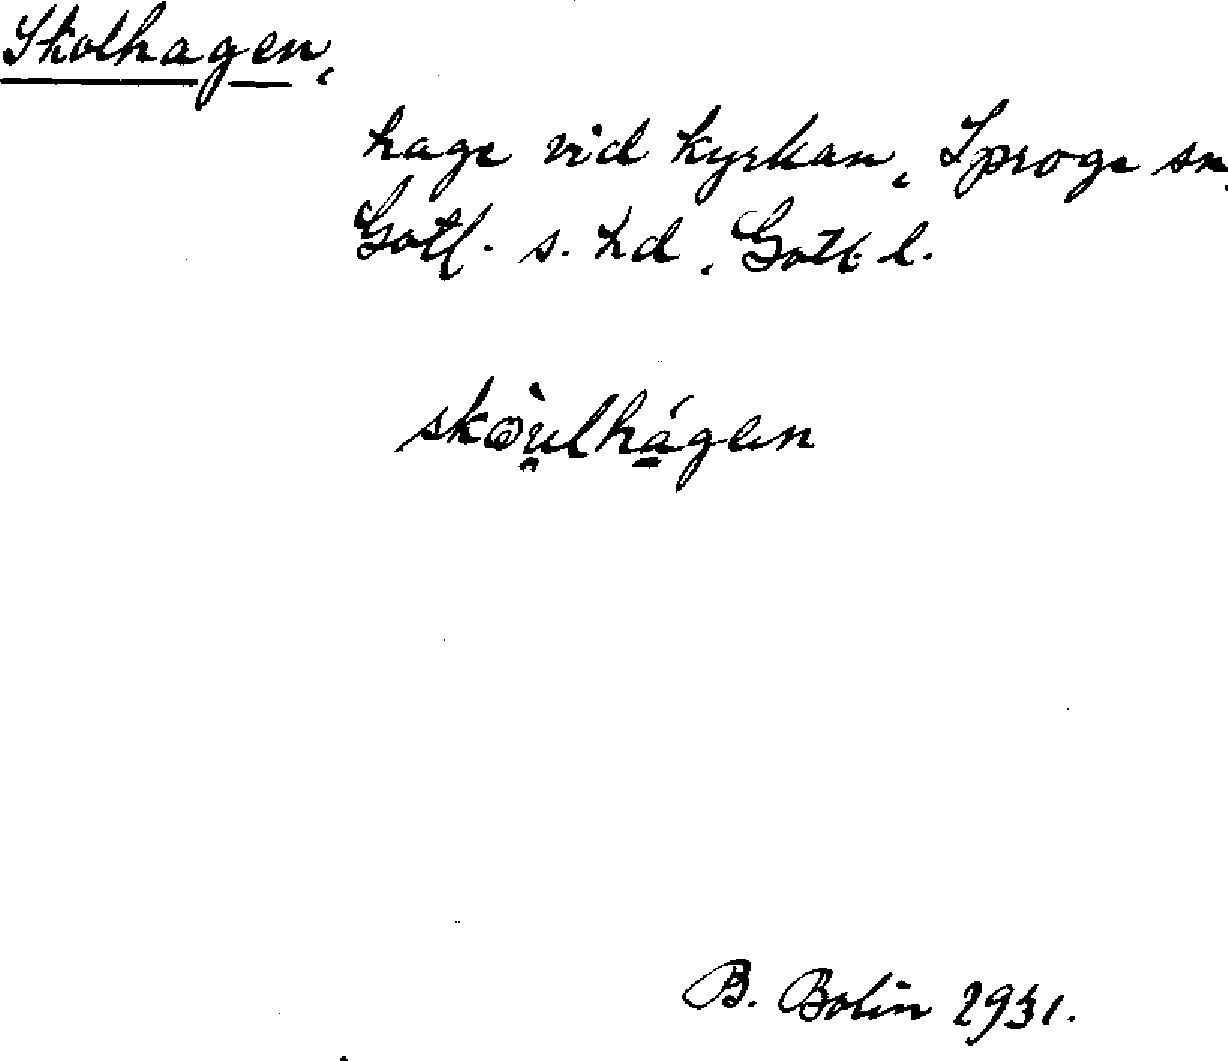 Skolhagen,
hage vid kyrkan, Sproge sn,
Gotl. s. hd, Gotl. l.
skòu̯lhá̱gen
B. Bolin 1931.